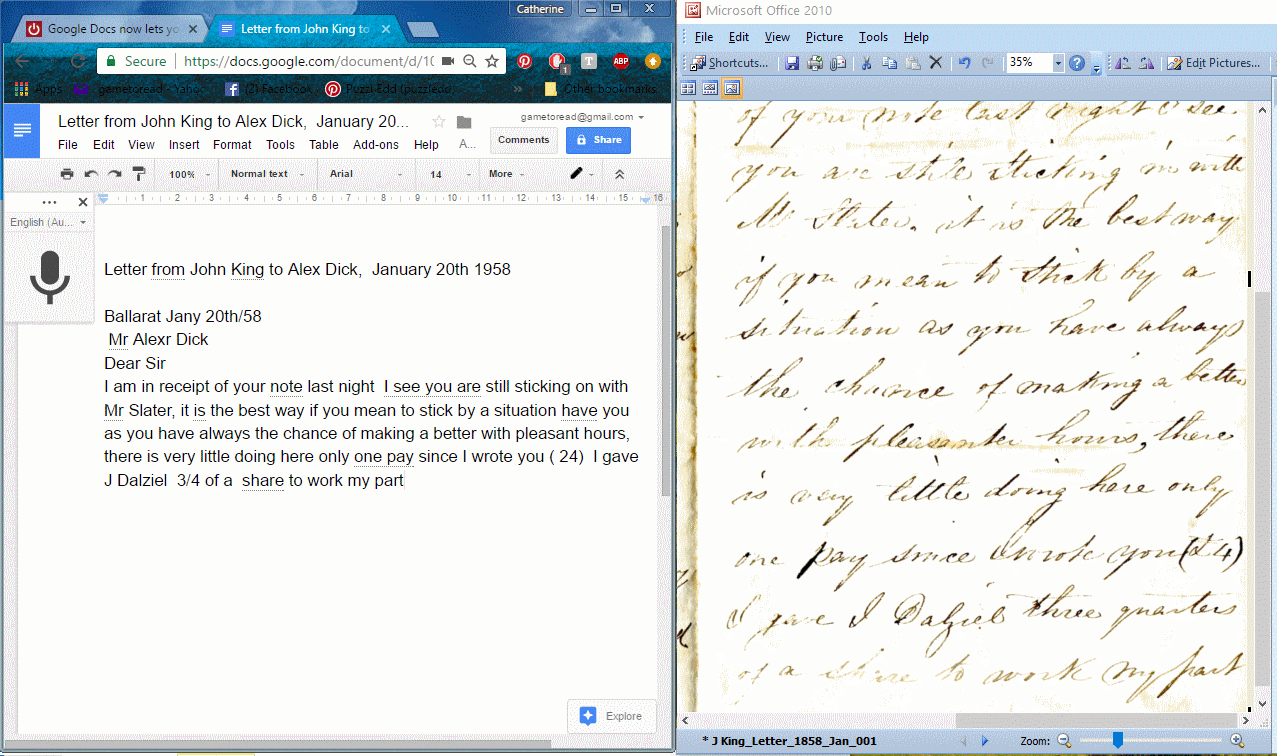 Catherine
Google Docs now lets yo
Letter from John King to
Secure
https://docs.google.com/document/d/10
ABP
1
Apps
gametoread - Yahoo
(2) Facebook
Puzzl-Edd (puzzledd
»
Other bookmarks
Letter from John King to Alex Dick,  January 20...
gametoread@gmail.com
File Edit View Insert Format Tools Table Add-ons Help A...
Comments
Share
100% Normal text Arial 14 More
1 2 3 4 5 6 7 8 9 10 11 12 13 14 15 16
English (Au...
Letter from John King to Alex Dick,  January 20th 1958
Ballarat Jany 20th/58
Mr Alexr Dick
Dear Sir
I am in receipt of your note last night  I see you are still sticking on with
Mr Slater, it is the best way if you mean to stick by a situation have you
as you have always the chance of making a better with pleasant hours,
there is very little doing here only one pay since I wrote you ( 24)  I gave
J Dalziel  3/4 of a  share to work my part
Explore
Microsoft Office 2010
File Edit View Picture Tools Help
Shortcuts...
35%
Edit Pictures...
of your note last night I see
you are still sticking in with
Mr Slater, it is the best way
if you mean to stick by a
situation as you have always
the chance of making a better
with pleasanter hours, there
is very little doing here only
one pay since I wrote you (£4)
I gave J Dalziel three quarters
of a share to work my part
* J King_Letter_1858_Jan_001
Zoom: